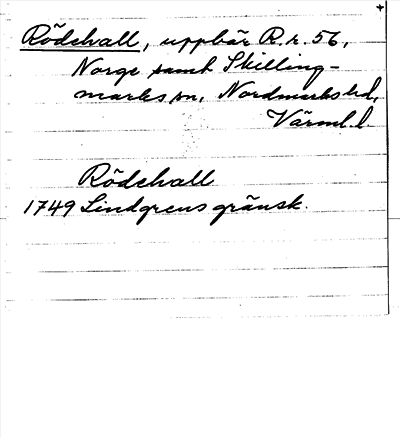 Rödehall, uppbär R.r. 56,
Norge samt Skilling-
marks sn, Nordmarks hd,
Värml. l.
Rödehall
1749 Lindgrens gränsk.